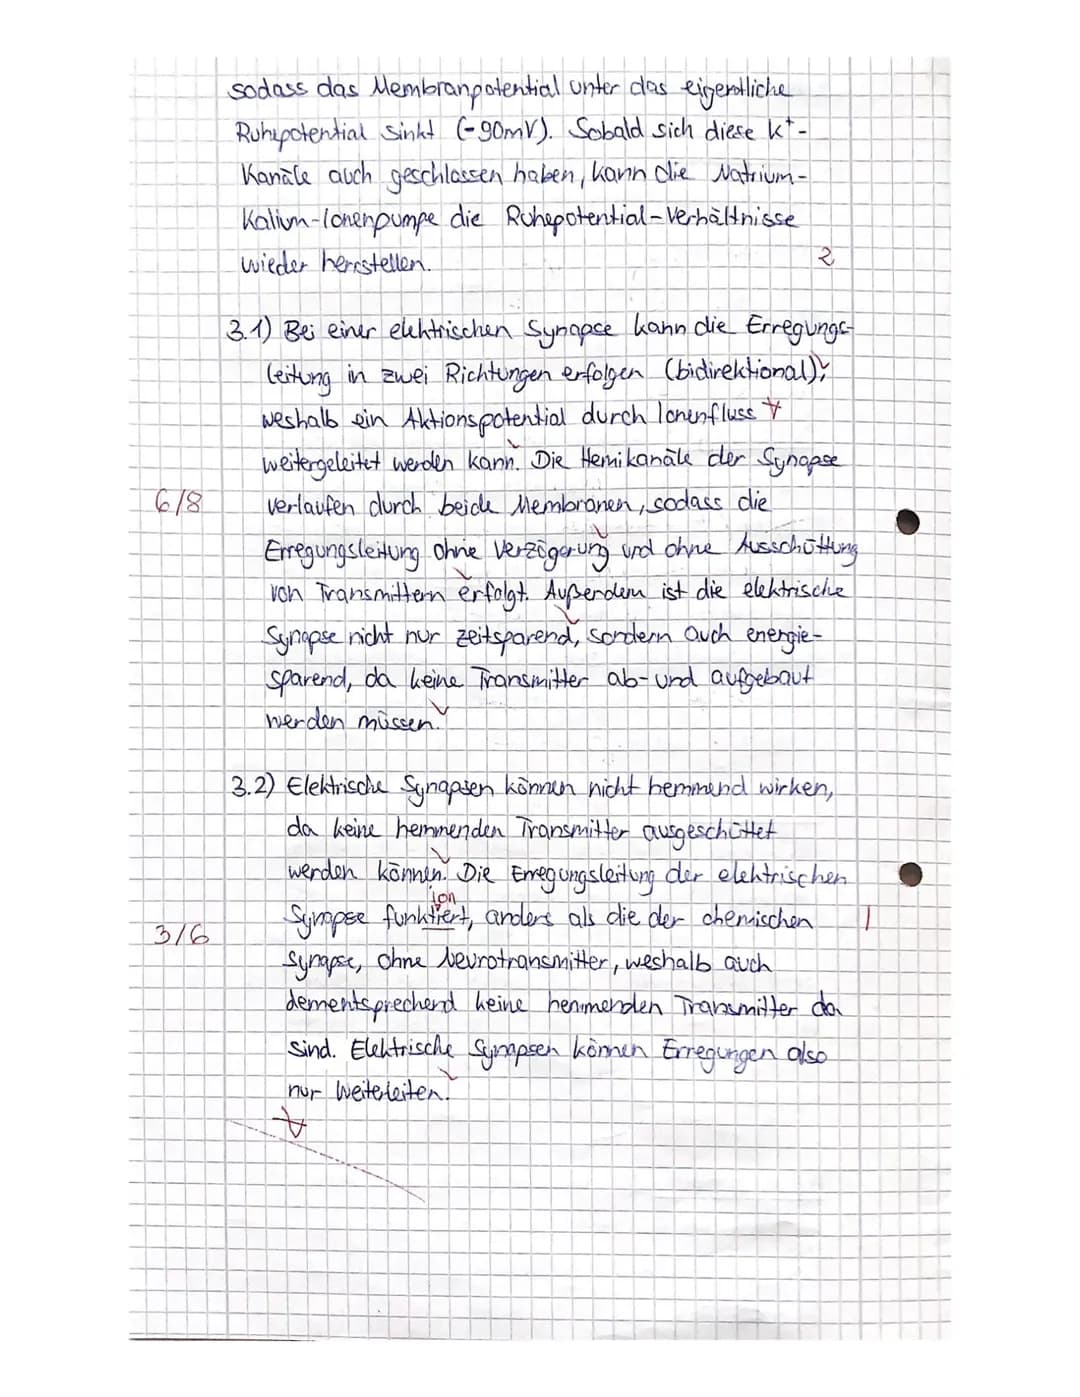 sodass das Membranpotential unter das eigentliche
Ruhepotential sinkt (-90mV). Sobald sich diese K⁺-
Kanäle auch geschlossen haben, kann die Natrium-
Kalium-Ionenpumpe die Ruhepotential-Verhältnisse
wieder herrstellen.
2
3.1) Bei einer elektrischen Synapse kann die Erregungs-
leitung in zwei Richtungen erfolgen (bidirektional),
weshalb ein Aktionspotential durch Ionenfluss
weitergeleitet werden kann. Die Hemikanäle der Synapse
6/8 verlaufen durch beide Membranen, sodass die
Erregungsleitung ohne Verzögerung und ohne Ausschüttung
von Transmittern erfolgt. Außerdem ist die elektrische
Synapse nicht nur zeitsparend, sondern auch energie-
sparend, da keine Transmitter ab- und aufgebaut
werden müssen.
3.2) Elektrische Synapsen können nicht hemmend wirken,
da keine hemmenden Transmitter ausgeschüttet
werden können. Die Erregungsleitung der elektrischen
ion
Synapse funktiert, anders als die der chemischen |
3/6
Synapse, ohne Neurotransmitter, weshalb auch
dementsprechend keine hemmenden Transmitter da
sind. Elektrische Synapsen können Erregungen also
nur weiterleiten.